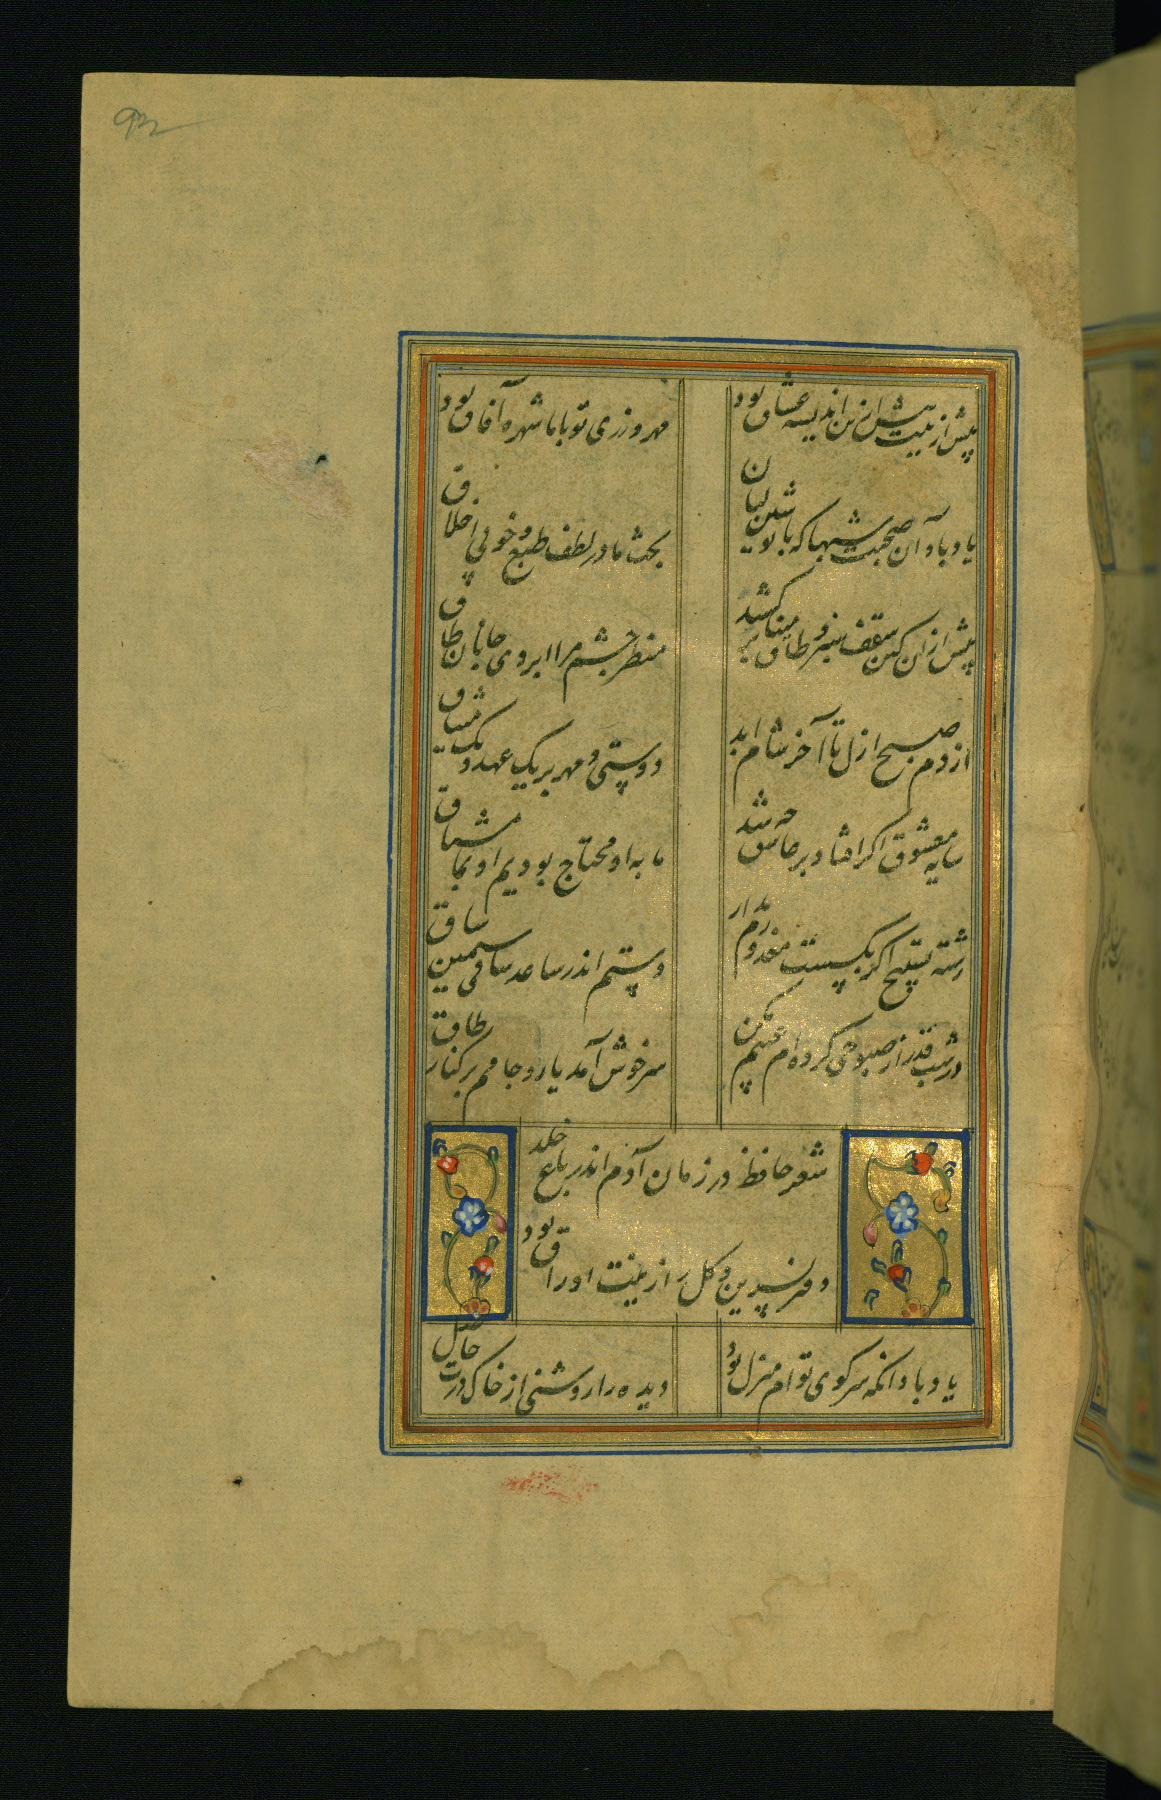 پیش ازینت بیش ازین اندیشه عشاق بود
مهرورزی تو با ما شهره آفاق بود
یاد باد آن صحبت شبها که با نوشین لبان
بحث ما در لطف طبع و خوبی اخلاق
پیش ازان کین سقف سبز و طاق مینا برکشند
منظر چشم مرا ابروی جانان طاق
از دم صبح ازل تا آخر شام ابد
دوستی و مهر بر یک عهد و یک میثاق
سایه معشوق اگر افتاد بر عاشق چه شد
ما به او محتاج بودیم او بما مشتاق
رشته تسبیح اگر بگسست معذورم بدار
دستم اندر ساعد ساقی سیمین ساق
در شب قدر ار صبوحی کرده ام عیبم مکن
سرخوش آمد یار و جامم بر کنار طاق
شعر حافظ در زمان آدم اندر باغ خلد
دفتر نسرین و گل را زینت اوراق بود
یاد باد آنکه سر کوی توام منزل بود
دیده را روشنی از خاک درت حاصل